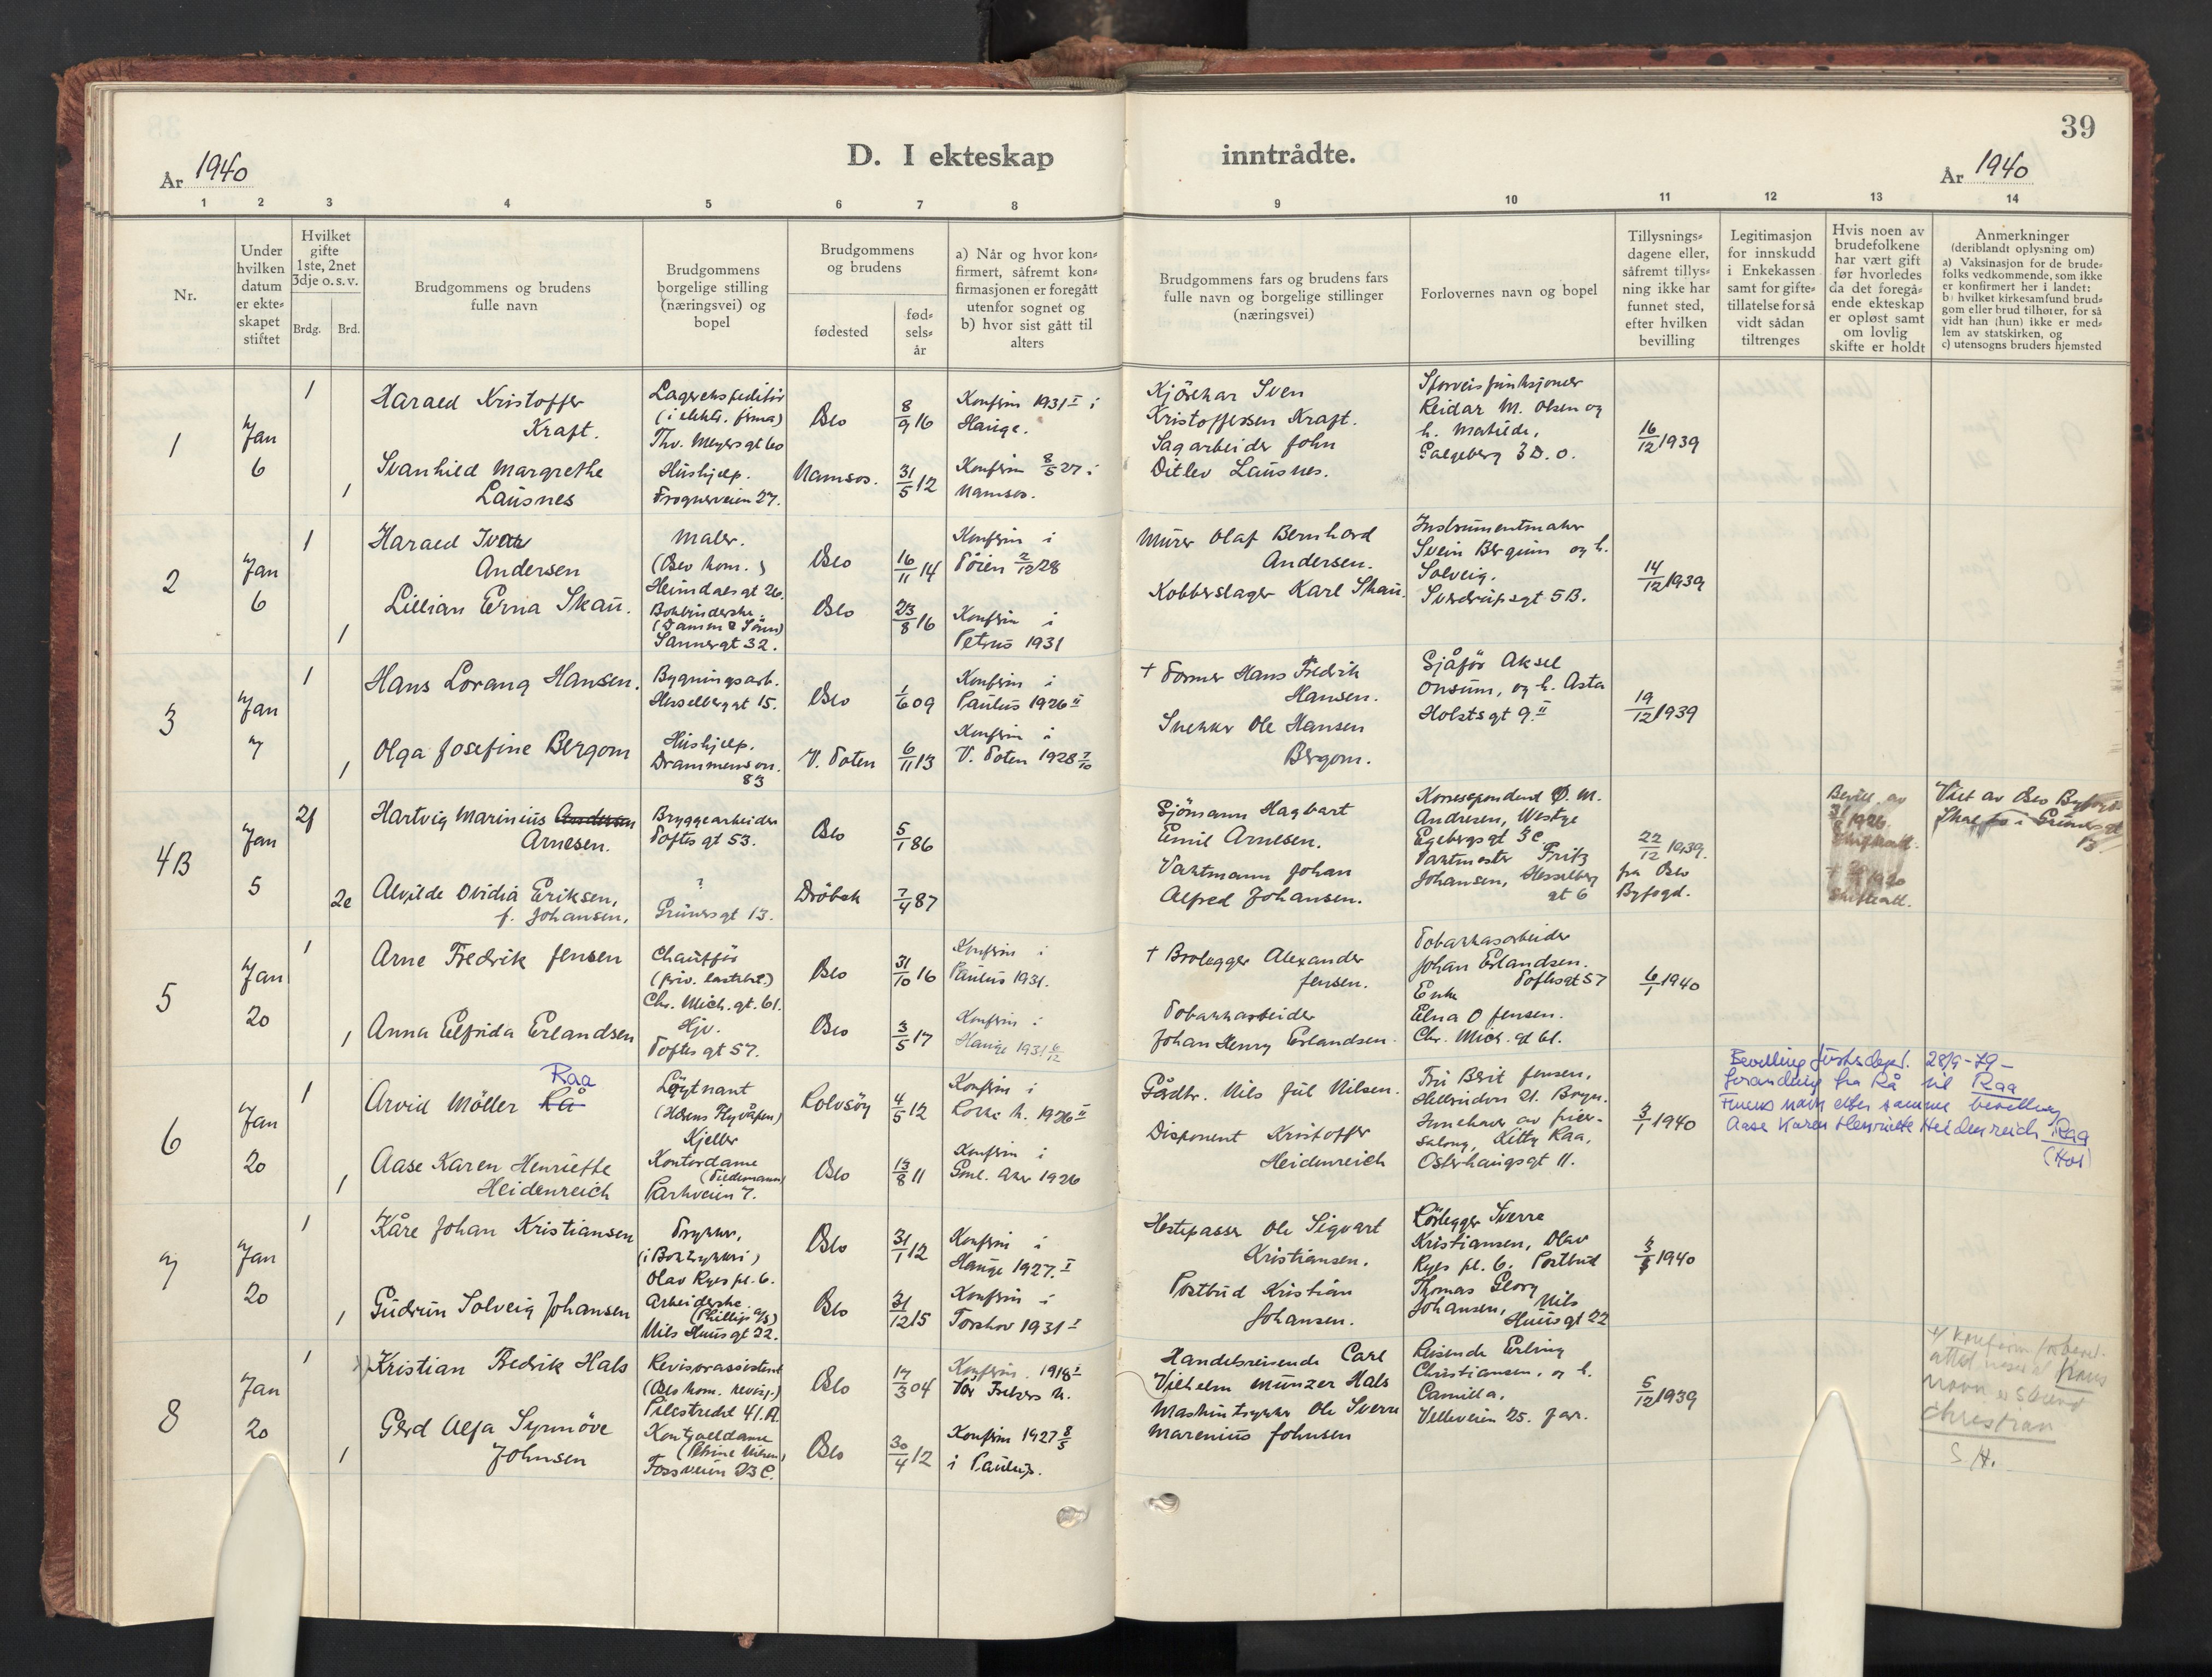 39
D. I ekteskap inntrådte.
År 1940
År 1940
1 2 3 4 5 6 7 8 9 10 11 12 13 14
Nr.
Under hvilken datum er ekte-skapet stiftet
Hvilket gifte 1ste, 2net 3dje o. s. v.
Brdg. Brd.
Brudgommens og brudens fulle navn
Brudgommens borgelige stilling (næringsvei) og bopel
Brudgommens og brudens
fødested
fød-sels-år
a) Når og hvor kon-firmert, såfremt kon-firmasjonen er foregått utenfor sognet og
b) hvor sist gått til alters
Brudgommens fars og brudens fars fulle navn og borgelige stillinger (næringsvei)
Forlovernes navn og bopel
Tillysnings-dagene eller, såfremt tillys-ning ikke har funnet sted, efter hvilken bevilling
Legitimasjon for innskudd i Enkekassen samt for gifte-tillatelse for så vidt sådan tiltrenges
Hvis noen av brudefolkene har vært gift før hvorledes da det foregå-ende ekteskap er opløst samt om lovlig skifte er holdt
Anmerkninger
(deriblandt oplysning om)
a) Vaksinasjon for de brude-folks vedkommende, som ikke er konfirmert her i landet:
b) hvilket kirkesamfund brud-gom eller brud tilhører, for så vidt han (hun) ikke er med-lem av statskirken, og
c) utensogns bruders hjemsted
1
Jan 6
1
Harald Kristoffer Kraft.
Lagerekspeditör
(i elektr. firma)
Thv. Meyersgt 60
Oslo
8/9 16
Konfirm 1931 I i Hauge.
Kjörekar Sven Kristoffersen Kraft.
Sporveisfunksjonær Reidar M. Olsen og h. Matilde, Galgeberg 3 D. o.
16/12 1939
1
Svanhild Margrethe Lausnes
Hushjelp.
Frognerveien 27.
Namsos.
31/5 12
Konfirm 8/5 27 i Namsos.
Sagarbeider John Ditlev Lausnes.
2
Jan 6
1
Harald Ivar Andersen
Maler.
(Oslo kom.)
Heimdalsgt 26.
Oslo
16/11 14
Konfirm i Töien 2/12 28
Murer Olaf Bernhard Andersen.
Instrumentmaker Svein Bergum og h. Solveig. Sverdrupsgt 5B.
14/12 1939
1
Lillian Erna Skau.
Bokbinderske.
(Damm & Sönn)
Sannergt 32.
Oslo
23/8 16
Konfirm i Petrus 1931
Kobberslager Karl Skau.
3
Jan 7
1
Hans Lorang Hansen.
Bygningsarb.
Hesselberggt 15.
Oslo
1/6 09
Konfirm i Paulus 1926 II
+ Former Hans Fredrik Hansen.
Sjåför Aksel Onsum, og h. Asta Holstsgt 9. II
19/12 1939
1
Olga Josefine Bergom
Hushjelp.
Drammensvn. 83
V. Toten
6/11 13
Konfirm i V. Toten 1928 7/10
Snekker Ole Hansen Bergom.
4B
Jan 5
2f
Hartvig Marinius Andersen Arnesen.
Bryggearbeider
Toftes gt 53.
Oslo
5/1 86
Sjömann Hagbart Emil Arnesen.
Korrespondent Ø. M. Andresen, Westye Egebergsgt 3 C.
22/12 1939. fra Oslo Byfogd.
2e
Alvilde Ovidia Eriksen, f. Johansen,
?
Grünersgt 13.
Dröbak
7/4 87
Vaktmann Johan Alfred Johansen.
Vaktmester Fritz Johansen, Hesselberg gt 6
Viet av Oslo
5
Jan 20
1
Arne Fredrik Jensen
Chaufför
(priv. lastebil.)
Chr. Mich. gt. 61.
Oslo
31/10 16
Konfirm i Paulus 1931.
+ Brolegger Alexander Jensen.
Tobakkasarbeider Johan Erlandsen. Toftesgt 57
6/1 1940
1
Anna Elfrida Erlandsen
Hjv.
Toftes gt 57.
Oslo
3/5 17
Konfirm i Hauge 1931 6/12
Tobakkarbeider Johan Henry Erlandsen.
Enke Elna O Jensen. Chr. Mich. gt 61.
6
Jan 20
1
Arvid Möller Rå Raa
Löytnant
(Hærens Flyvåpen)
Kjeller
Rolvsöy
4/5 12
Konfirm i k. 1926 II
Gårdbr. Nils Jul Nilsen.
Fru Berit Jensen, Hellerudvn 21. Bryn.
3/1 1940
1
Aase Karen Henriette Heidenreich
Kontordame
(Tiedemann)
Parkveien 7.
Oslo
13/8 11
Konfirm i Aker 1926
Disponent Kristoffer Heidenreich
Innehaver av frisersalong, Kitty Raa, Osterhausgt 11.
Bevilling Justisdepd. 28/9-79 –
forandring fra Rå til Raa
navn etter samme bevilling
Aase Karen Henriette Heidenreich Raa
7
Jan 20
1
Kåre Johan Kristiansen
Trykker,
(i Boktrykkeri)
Olav Ryes pl. 6.
Oslo
31/1 12
Konfirm i Hauge 1927. I
Hestepasser Ole Sigvart Kristiansen.
Rörlegger Sverre Kristiansen, Olav Ryes pl. 6.
1940
1
Gudrun Solveig Johansen
Arbeiderske
(Phillips a/s)
Nils Huus gt 22.
Oslo
31/12 15
Konfirm i Torshov 1931 I
Postbud Kristian Johansen.
Postbud Thomas Georg Johansen, Nils Huusgt 22
8
Jan 20
1
Kristian Fredrik Hals
Revisorassistent
(Oslo kom. revisj.)
Pilestredet 41. A.
Oslo
17/3 04
Konfirm. 1918 I Vår Frelsers k.
Handelsreisende Carl Vilhelm Münzer Hals
Reisende Erling Christiansen, og h. Camilla, Velleveien 25. Jar.
5/12 1939
1
Gerd Alfa Synnöve Johnsen
Kontordame
Fossveien 23 C.
Oslo
30/4 12
Konfirm 1927 8/5 i Paulus.
Maskintrykker Ole Sverre Marenius Johnsen
navn
Christian
S. H.